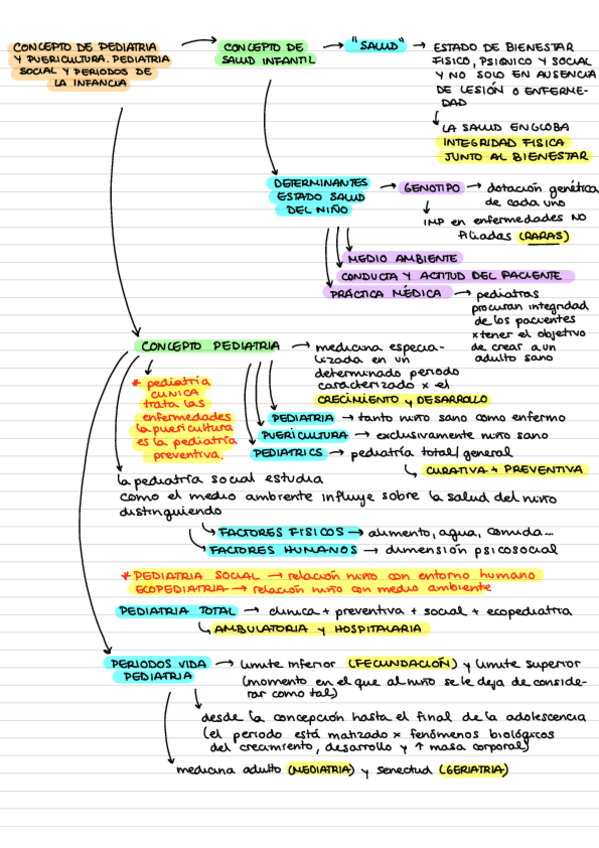 CONCEPTO DE PEDIATRIA
Y PUERICULTURA. PEDIATRIA
SOCIAL Y PERIODOS DE
LA INFANCIA
→ CONCEPTO DE
SALUD INFANTIL
→ "SALUD" → ESTADO DE BIENESTAR
FISICO, PSIQUICO Y SOCIAL
Y NO SOLO EN AUSENCIA
DE LESIÓN O ENFERME-
DAD
↳ LA SALUD ENGLOBA
INTEGRIDAD FISICA
JUNTO AL BIENESTAR
DETERMINANTES
ESTADO SALUD
DEL NIÑO
→ GENOTIPO → dotación genética
de cada uno
↳ IMP en enfermedades NO
filiadas (RARAS)
MEDIO AMBIENTE
CONDUCTA Y ACTITUD DEL PACIENTE
PRÁCTICA MÉDICA → pediatras
procuran integridad
de los pacientes
x tener el objetivo
de crear a un
adulto sano
CONCEPTO PEDIATRIA → medicina especia-
lizada en un
determinado periodo
caracterizado x el
CRECIMIENTO y DESARROLLO
* pediatría
CLINICA
trata las
enfermedades
la puericultura
es la pediatría
preventiva.
PEDIATRIA → tanto niño sano como enfermo
PUERICULTURA → exclusivamente niño sano
PEDIATRICS → pediatría total/general
↳ CURATIVA + PREVENTIVA
la pediatría social estudia
como el medio ambiente influye sobre la salud del niño
distinguiendo
↳ FACTORES FISICOS → alimento, agua, comida...
↳ FACTORES HUMANOS → dimensión psicosocial
* PEDIATRIA SOCIAL → relación niño con entorno humano
ECOPEDIATRIA → relación niño con medio ambiente
PEDIATRIA TOTAL → clinica + preventiva + social + ecopediatria
↳ AMBULATORIA y HOSPITALARIA
PERIODOS VIDA
PEDIATRIA
→ límite inferior (FECUNDACIÓN) y límite superior
(momento en el que al niño se le deja de conside-
rar como tal)
desde la concepción hasta el final de la adolescencia
(el periodo está matizado x fenómenos biológicos
del crecimiento, desarrollo y ↑ masa corporal)
medicina adulto (MEDIATRIA) y senectud (GERIATRIA)